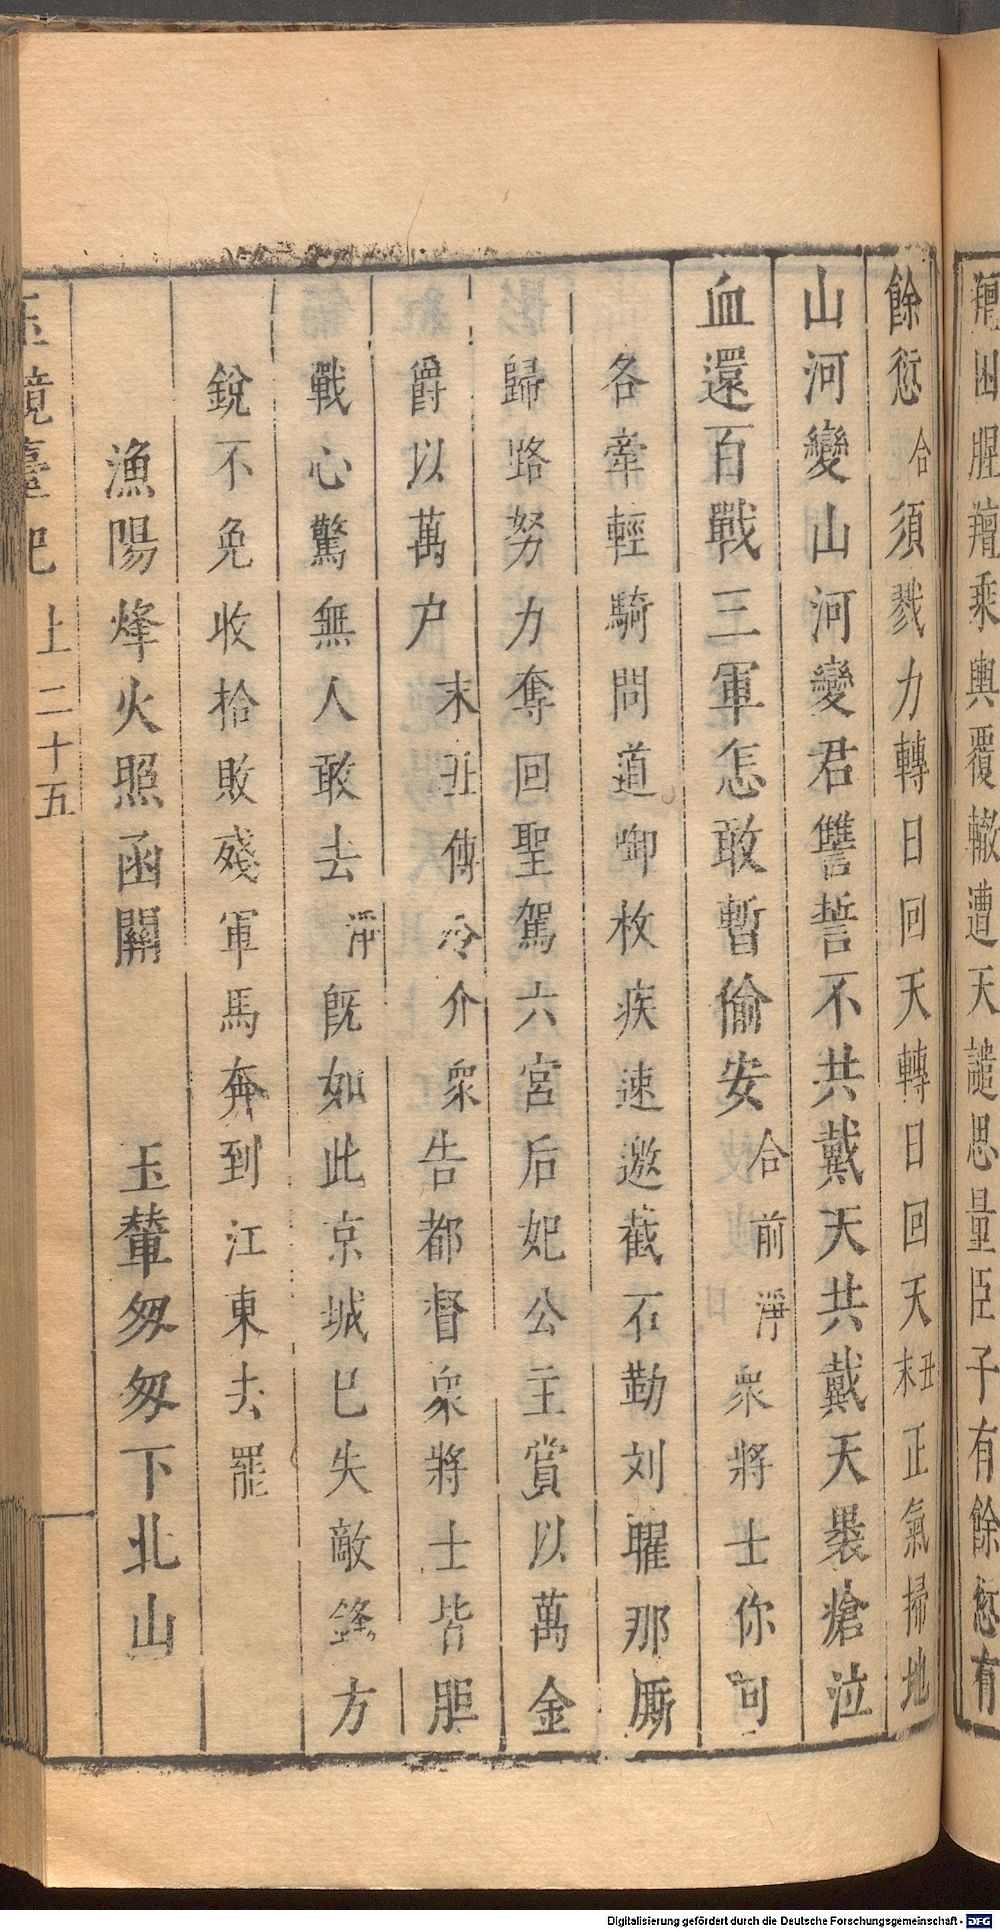 羶困腥羶乘輿覆轍遭天譴思量臣子有餘愆有
餘愆合須戮力轉日回天轉日回天丑末正氣掃地
山河變山河變君讐誓不共戴天共戴天裹瘡泣
血還百戰三軍怎敢暫偷安合前淨衆將士你可
各牽輕騎問道啣枚疾速邀截石勒刘曜那厮
歸路努力奪回聖駕六宮后妃公主賞以萬金
爵以萬户末丑傳冷介衆告都督衆將士皆胆
戰心驚無人敢去淨既如此京城已失敵鋒方
銳不免收拾敗殘軍馬奔到江東去罷
漁陽烽火照函關 玉輦匆匆下北山
玉鏡臺記 上二十五
Digitalisierung gefördert durch die Deutsche Forschungsgemeinschaft - DFG